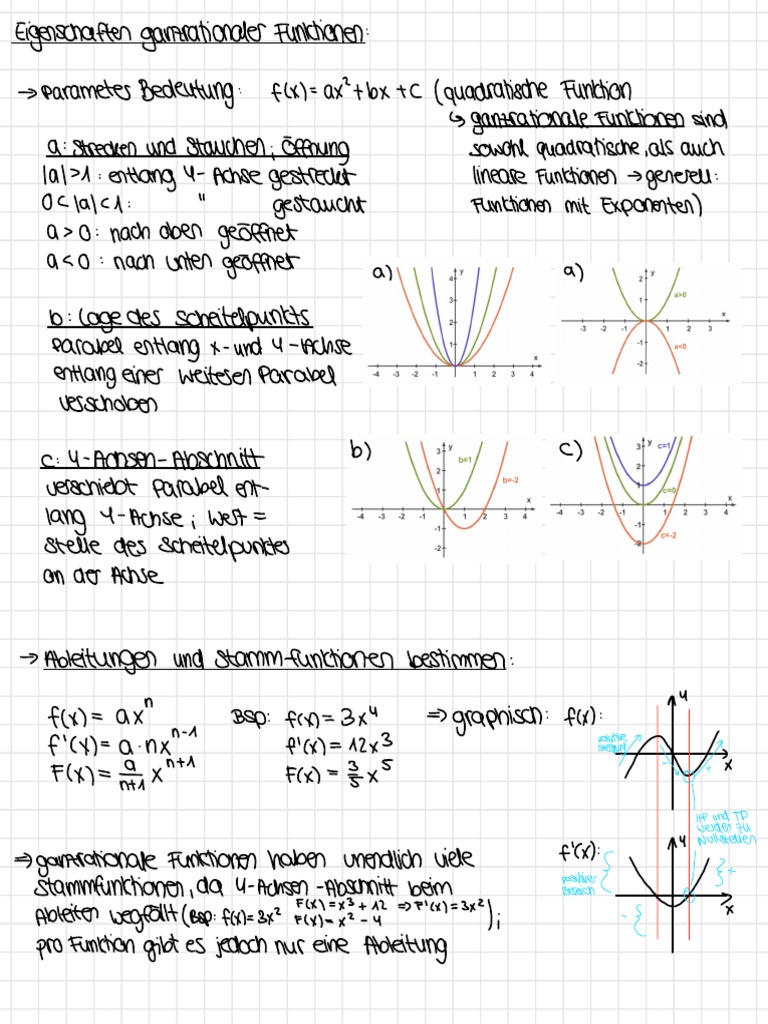 Eigenschaften ganzrationaler Funktionen:
→ Parameter Bedeutung: f(x) = ax² + bx + c (quadratische Funktion
↳ ganzrationale Funktionen sind
sowohl quadratische, als auch
lineare Funktionen → generell:
Funktionen mit Exponenten)
a: Strecken und Stauchen; Öffnung
|a|>1: entlang y-Achse gestreckt
0<|a|<1: " gestaucht
a>0: nach oben geöffnet
a<0: nach unten geöffnet
b: Lage des Scheitelpunkts
Parabel entlang x- und y-Achse
entlang einer weiteren Parabel
verschoben
c: y-Achsen-Abschnitt
verschiebt Parabel ent-
lang y-Achse; Wert =
Stelle des Scheitelpunktes
an der Achse
a)
y
4
3
2
1
-4 -3 -2 -1 1 2 3 4
x
a)
y
2
1
-1
-2
-3 -2 -1 1 2 3
x
a>0
a<0
b)
y
3
2
1
-1
-2
-4 -3 -2 -1 1 2 3 4
x
b=1
b=-2
c)
y
3
2
1
-1
-2
-4 -3 -2 -1 1 2 3 4
x
c=1
c=0
c=-2
→ Ableitungen und Stammfunktionen bestimmen:
f(x) = axⁿ BSP: f(x) = 3x⁴ ⇒ graphisch: f(x):
f'(x) = a·nxⁿ⁻¹ f'(x) = 12x³
F(x) = a/n+1 xⁿ⁺¹ F(x) = 3/5 x⁵
y
x
positive
Steigung
- +
HP und TP
werden zu
Nullstellen
f'(x):
y
x
positiver
Bereich
+
-
⇒ ganzrationale Funktionen haben unendlich viele
Stammfunktionen, da y-Achsen-Abschnitt beim
Ableiten wegfällt (BSP: f(x) = 3x² F(x) = x³ + 12 ⇒ F'(x) = 3x²);
F(x) = x² - 4
pro Funktion gibt es jedoch nur eine Ableitung